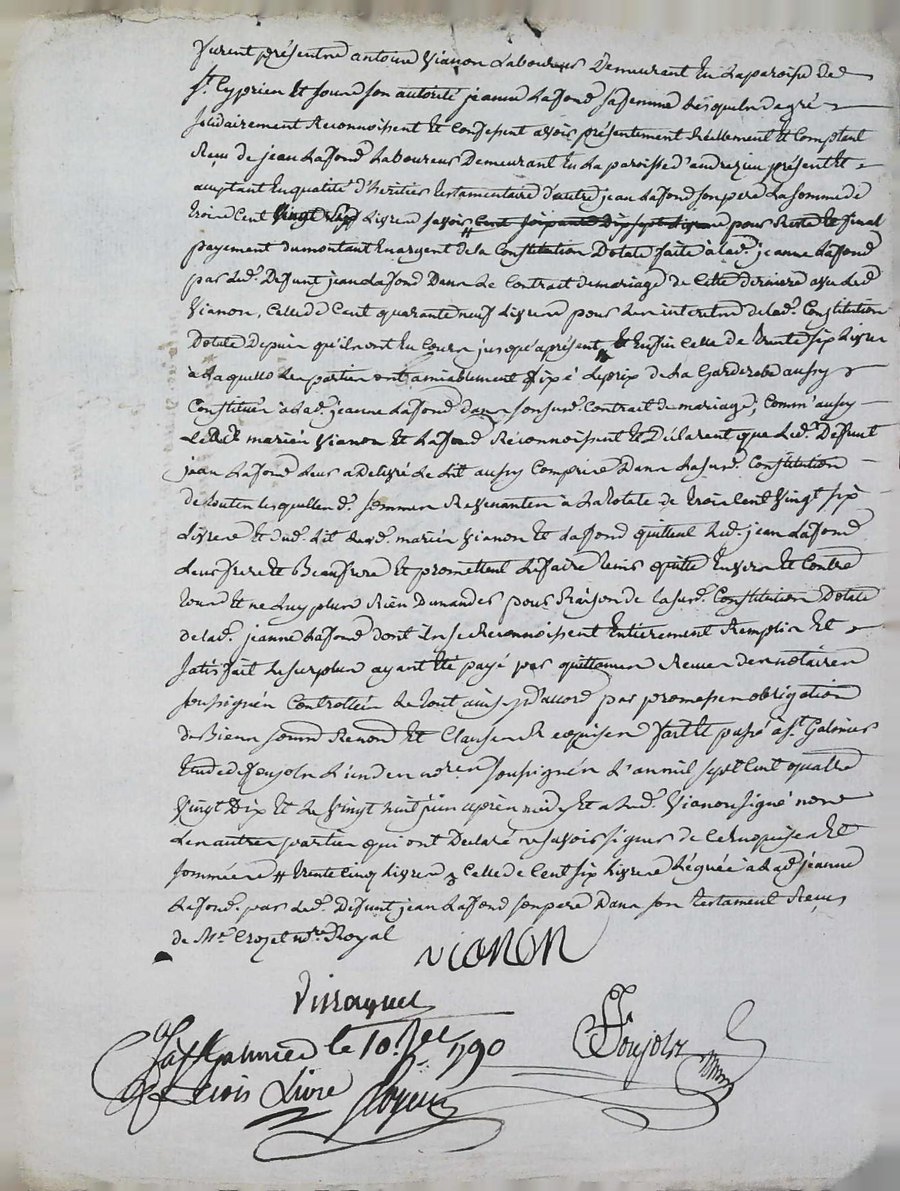 Furent présentre antoine Vianon Laboureur Demeurant En Laparoise de
St. Cyprien Et sound son autorité jeanne Lafond safemme Lesqueln degré
solidairement Reconnoissent Et Confessent avoir présentiment Réellement Et Comptant
Reçu de jean Lafond Laboureur Demeurant En La paroisse d'andrezieu présent Et
aceptant En qualité d'héritier testamentaire d'autre jean Lafond son pere La somme de
trois Cent Vingt Six Livres savoir cent soixante Dix sept Livres pour Reste Et final
payement dumontant En argent de la Constitution Dotale faite à lad. jeanne Lafond
par led. Deffunt jean Lafond Dans Le Contrat de mariage de Cette derniere avec led.
Vianon, Celle de Cent quarante neuf Livres pour Len interetn de lad. Constitution
Dotale Depuis qu'ilnont Eu Cours jusqu'apresent, Et Enfin Celle de trente six Livres
à Laquelle Len partien ont amiablement fixé Leprix de La Garderobe aussy
Constituée à lad. jeanne Lafond dans son sud. Contrat de mariage, Comm'aussy
Lesd. marién Vianon Et Lafond Réconnoissent Et Déclarent que Led. Deffunt
jean Lafond Leur a Delivré Le Lit aussy Comprise Dans La sud. Constitution
de touten lesquellen d. sommen Revenanten à La totale de trois Cent Vingt six
Livres Et dud. Lit Lesd. marién Vianon Et Lafond quittent Led. jean Lafond
Leur frere Et Beaufrere Et promettent Lefaire tenir quitte Envers Et Contre
tous Et ne Luy plus Rien Demander pour Raison de la sud. Constitution Dotale
de lad. jeanne Lafond dont iln se Reconnoissent Entierement Remplis Et
satisfait Le surplus ayant Eté payé par quittancen Recuen den notairen
soussignén Controlleén Le tout ainsy d'accord par promessen obligation
de Bienn soumn Renond Et Clausen Requisen fait Et passé à St. Galmier
Etude de foujoln L'un den noren soussignén L'an mil sept Cent quatre
Vingt Dix Et Le Vingt huit juin après midy Et a Led. Vianon signé non
Len autren partien qui ont Declaré ne savoir signer de Ce Enquisen Et
sommén # trente Cinq Livres, Celle de Cent six Livres Léguée à Lad. jeanne
Lafond. par Led. Deffunt jean Lafond son pere Dans son testament Reçu
de Me. Crozet nre. Royal
vianon
Foujoln
à St galmier le 10. 1790
trois Livre